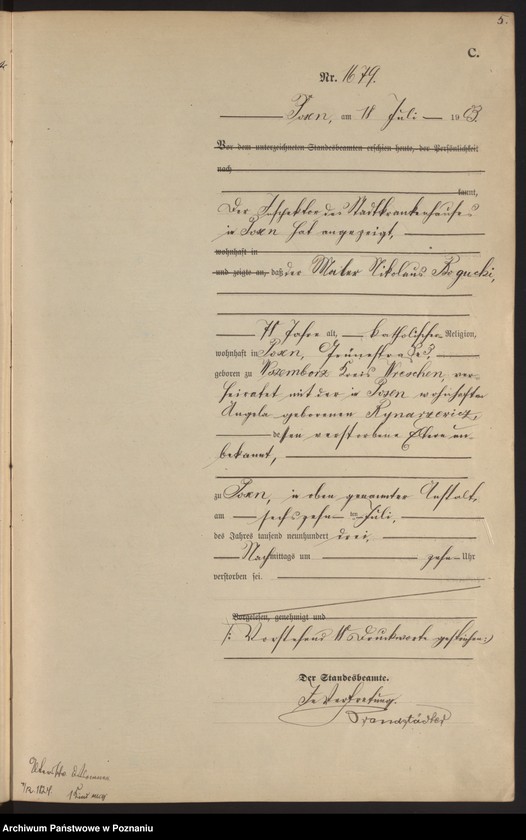 5.
C.
Nr. 1679.
Posen, am 18 Juli 1903.
Vor dem unterzeichneten Standesbeamten erschien heute, der Persönlichkeit
nach
kannt,
Der Inspektor des Stadtkrankenhauses
in Posen hat angezeigt,
wohnhaft in
und zeigte an, daß der Maler Nikolaus Bogucki,
Jahre alt, katholischer Religion,
wohnhaft in Posen, 
geboren zu Kreis Wreschen, ver-
heiratet mit der in Posen wohnhaften
Angela geborenen Rynarzewicz,
dessen verstorbene Eltern un-
bekannt,
zu Posen, in oben genannter Anstalt,
am sechszehn ten Juli,
des Jahres tausend neunhundert drei,
Nachmittags um zehn Uhr
verstorben sei.
Vorgelesen, genehmigt und
/: Vorstehend Druckworte gestrichen :/
Der Standesbeamte.
In Vertretung.
Archiwum Państwowe w Poznaniu